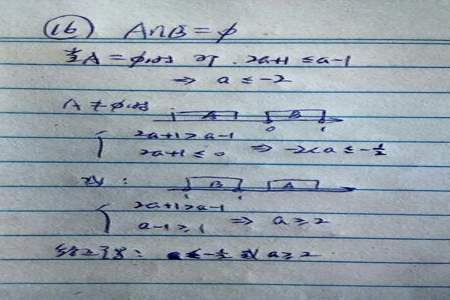 (16) A∩B=φ
当A=φ时 时, 2a+1≤a-1
⇒ a≤-2
A≠φ时
A B
0 1
{ 2a+1>a-1
2a+1≤0 ⇒ -2<a≤-½
或:
B A
{ 2a+1>a-1
a-1≥1 ⇒ a≥2
综上可得: a≤-½ 或 a≥2